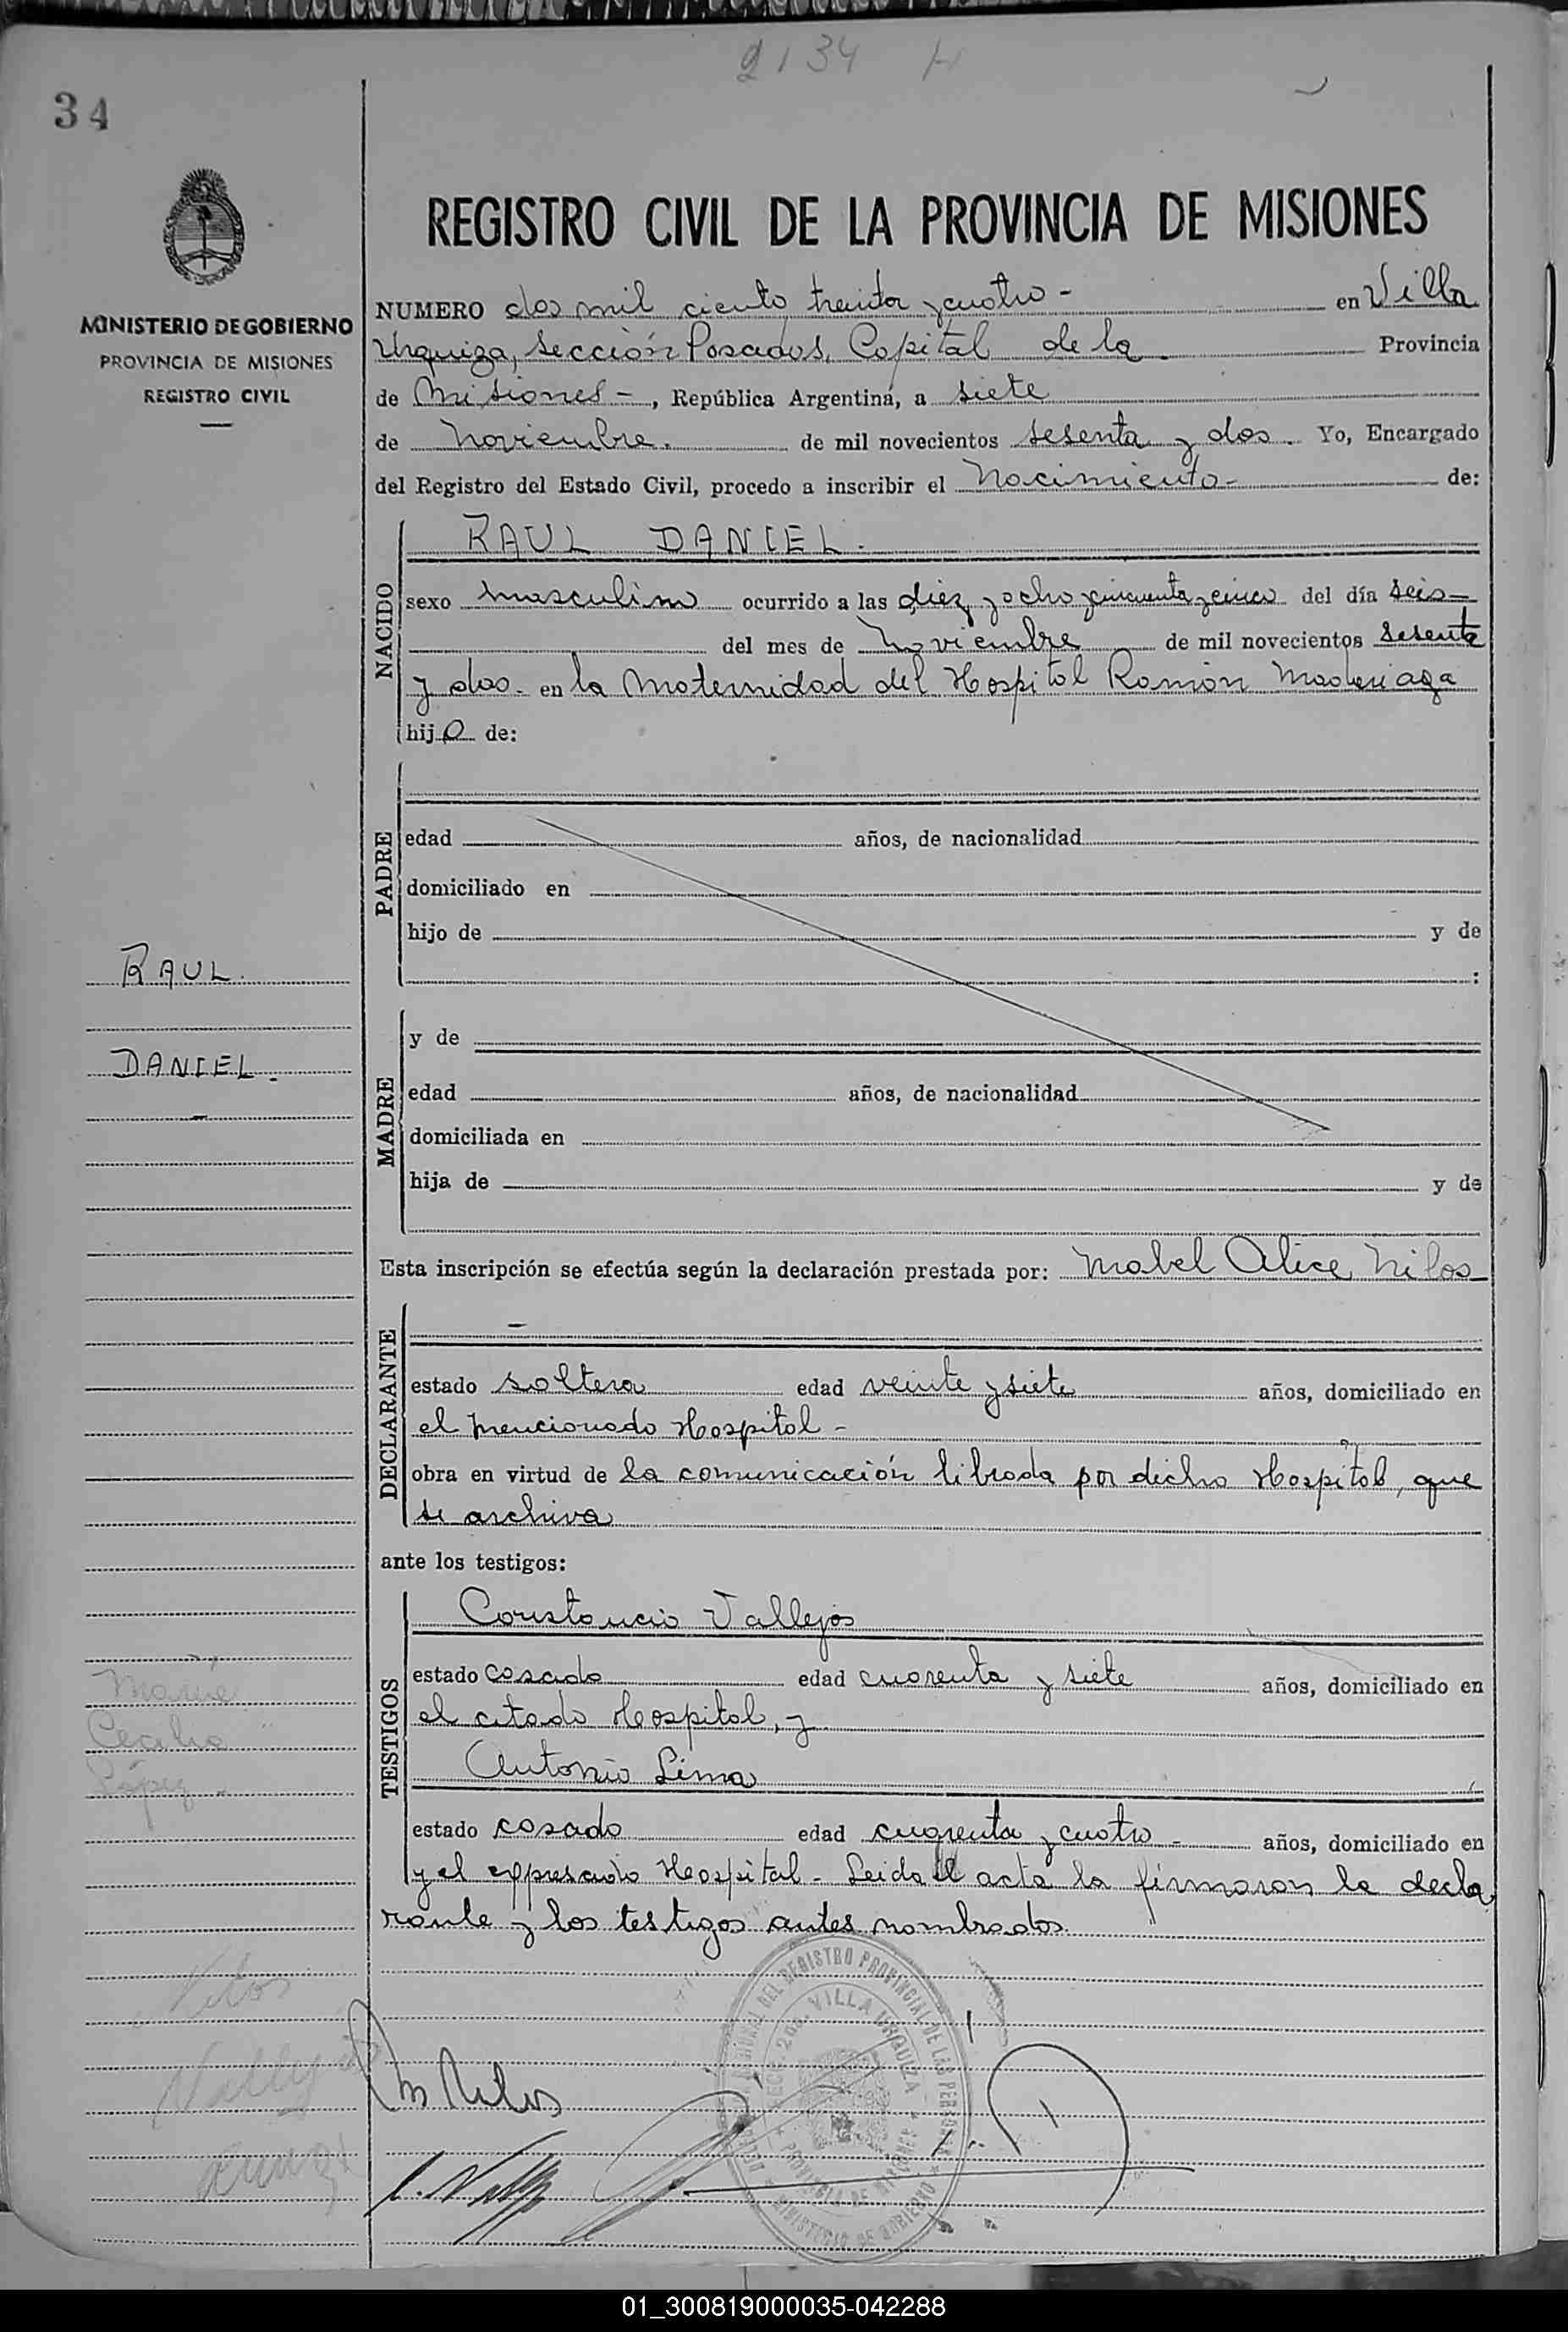 2134
34
REGISTRO CIVIL DE LA PROVINCIA DE MISIONES
MINISTERIO DE GOBIERNO
PROVINCIA DE MISIONES
REGISTRO CIVIL
NUMERO dos mil ciento treinta y cuatro - en Villa
Urquiza, Sección Posadas, Capital de la Provincia
de Misiones -, República Argentina, a siete
de Noviembre. de mil novecientos sesenta y dos. Yo, Encargado
del Registro del Estado Civil, procedo a inscribir el Nacimiento - de:
NACIDO
RAUL DANIEL.
sexo masculino ocurrido a las diez y ocho y cincuenta y cinco del día seis -
del mes de Noviembre de mil novecientos sesenta
y dos - en la Maternidad del Hospital Ramón Madariaga
hijo de:
PADRE
edad años, de nacionalidad
domiciliado en
hijo de y de
:
RAUL.
DANIEL.
-
MADRE
y de
edad años, de nacionalidad
domiciliada en
hija de y de
Esta inscripción se efectúa según la declaración prestada por: Mabel Alice Nilos
DECLARANTE
-
estado soltera edad veinte y siete años, domiciliado en
el mencionado Hospital -
obra en virtud de la comunicación librada por dicho Hospital, que
se archiva
ante los testigos:
TESTIGOS
Constancio Vallejos
estado casado edad cuarenta y siete años, domiciliado en
el citado Hospital, y
Antonio Lima
estado casado edad cuarenta y cuatro - años, domiciliado en
y el expresado Hospital - Leida el acta la firmaron la decla
rante y los testigos antes nombrados.
María
Cecilia
López -
Nilos
M Nilos
VILLA URQUIZA
PROVINCIA DE MISIONES
MINISTERIO DE GOBIERNO
01_300819000035-042288